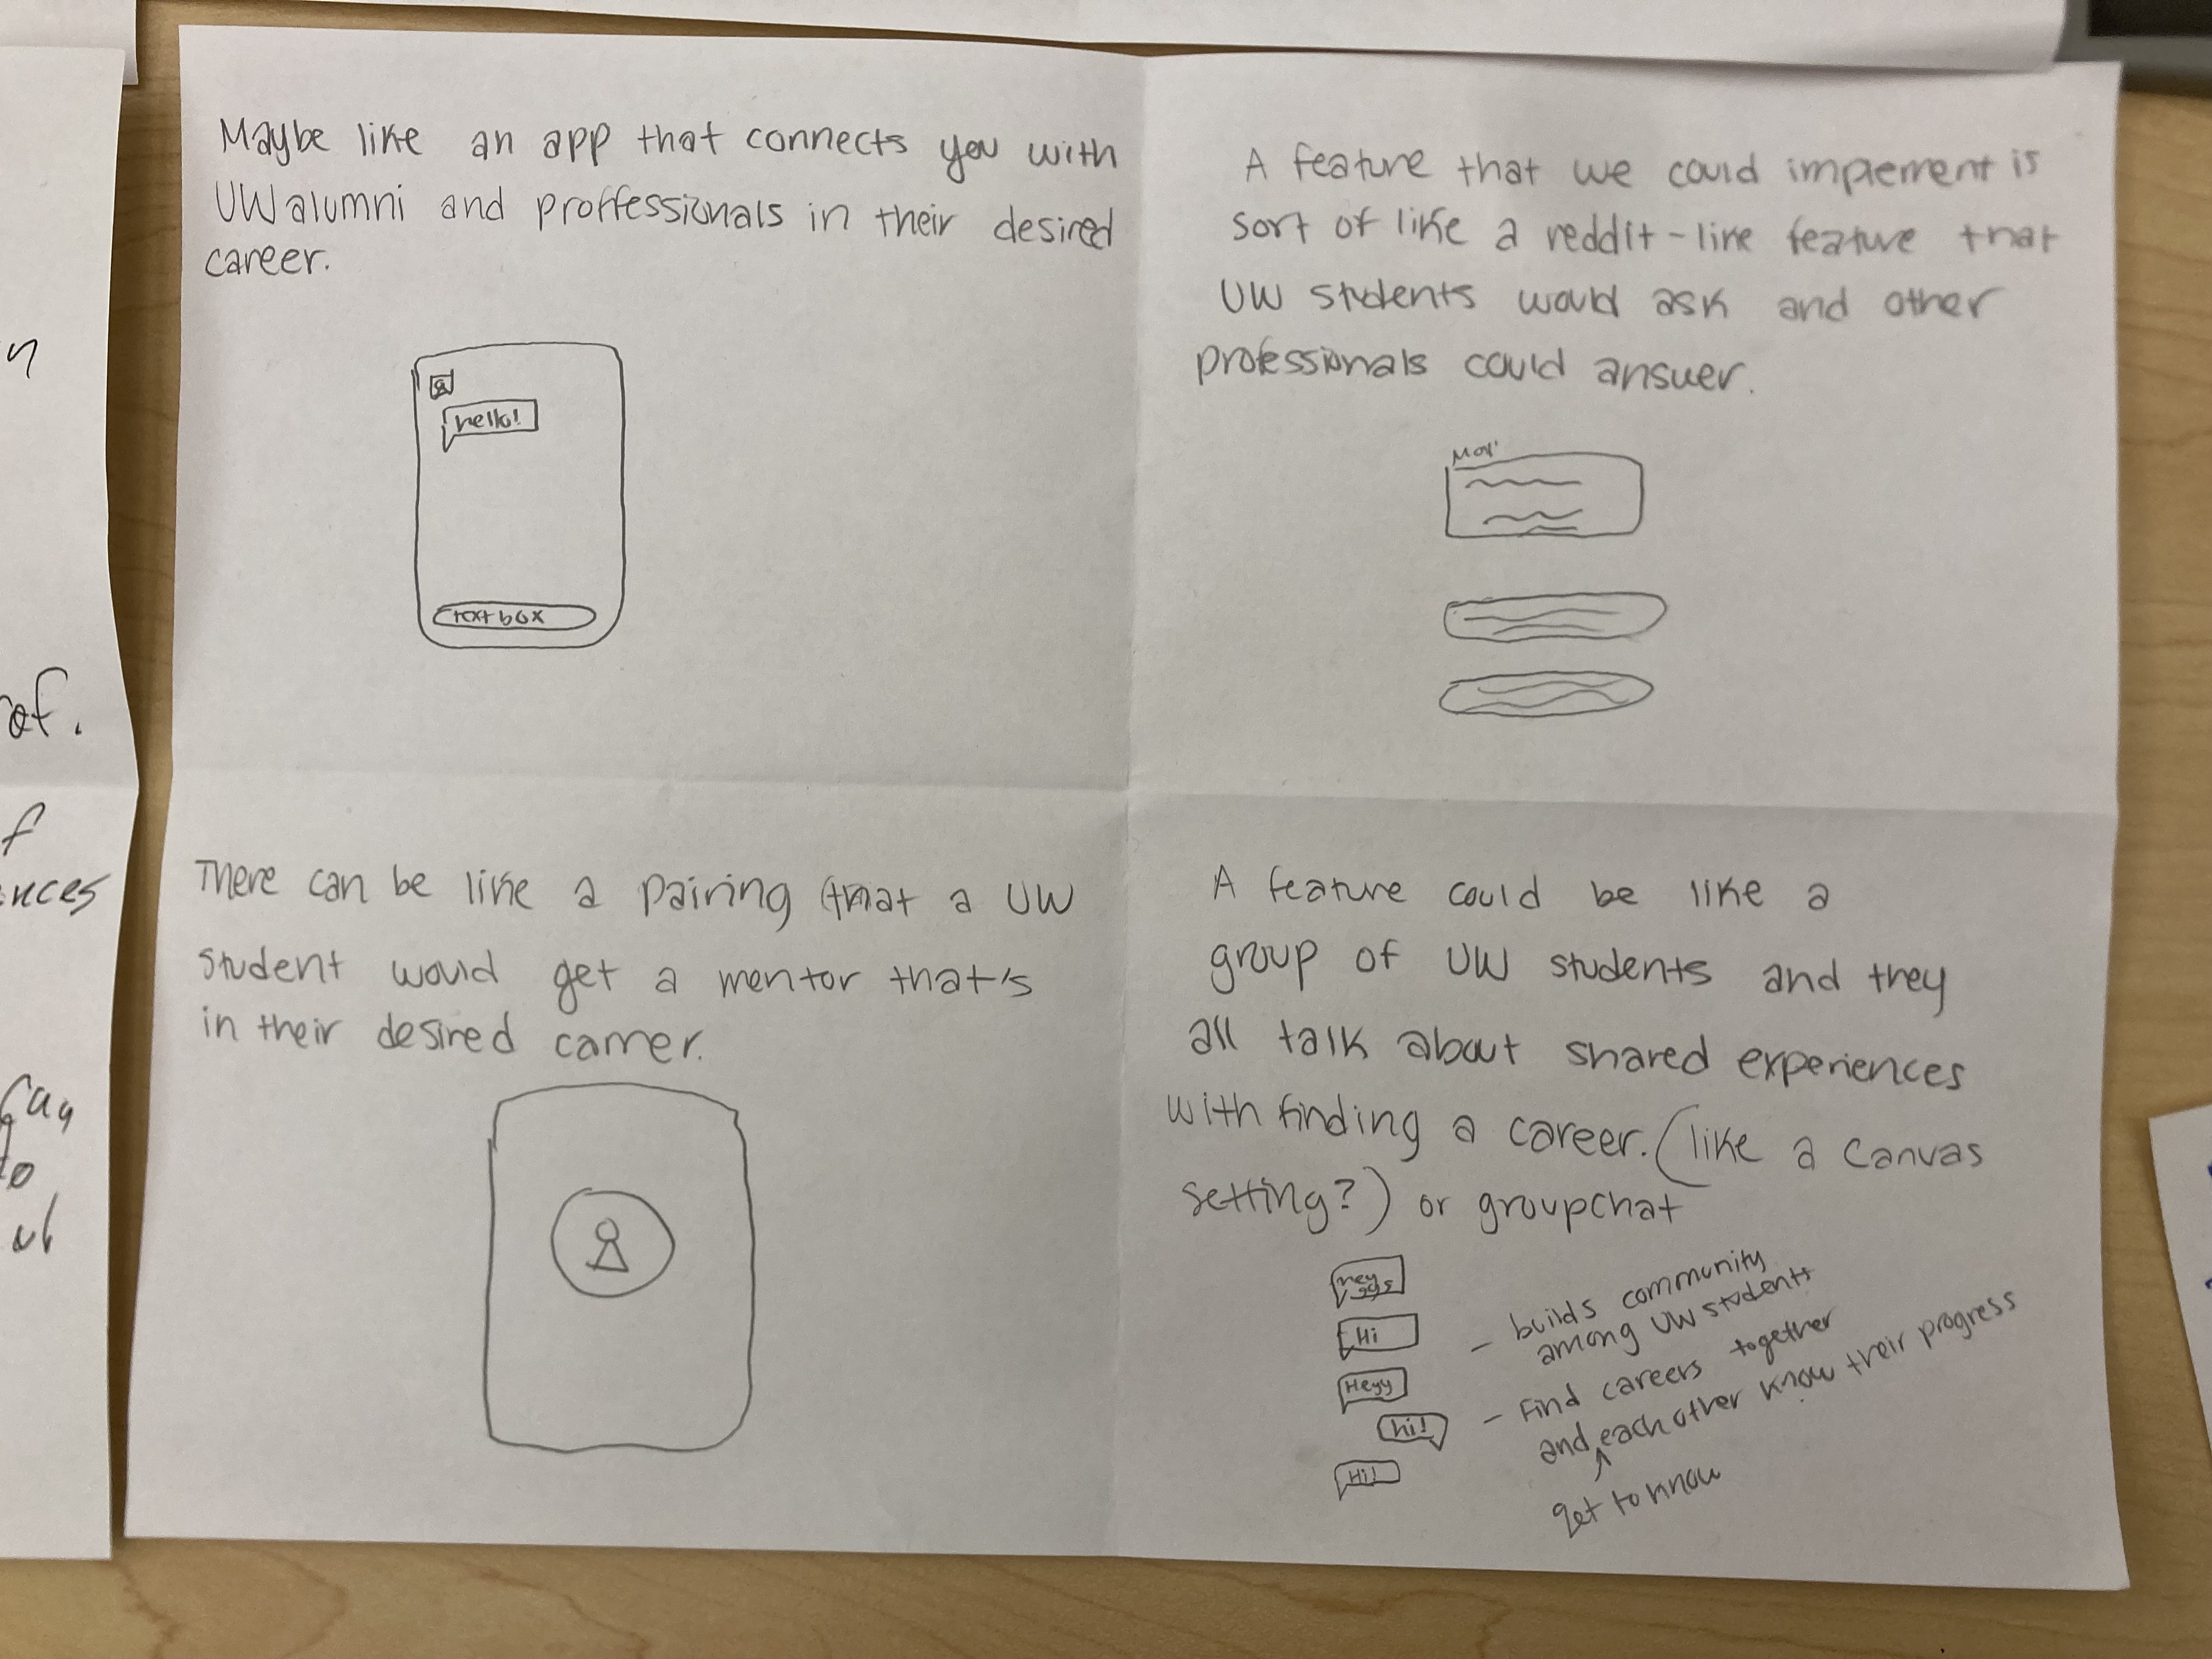 Maybe like an app that connects you with
UW alumni and proffessionals in their desired
career.
hello!
text box
A feature that we could implement is
sort of like a reddit-like feature that
UW students would ask and other
professionals could answer.
There can be like a pairing that a UW
student would get a mentor that's
in their desired carrer.
A feature could be like a
group of UW students and they
all talk about shared experiences
with finding a career. (like a canvas
setting?) or groupchat
Hi
Heyy
hi!
Hi!
- builds community
among UW students
- Find careers together
and each other know their progress
get to know
of.
f
nces
to